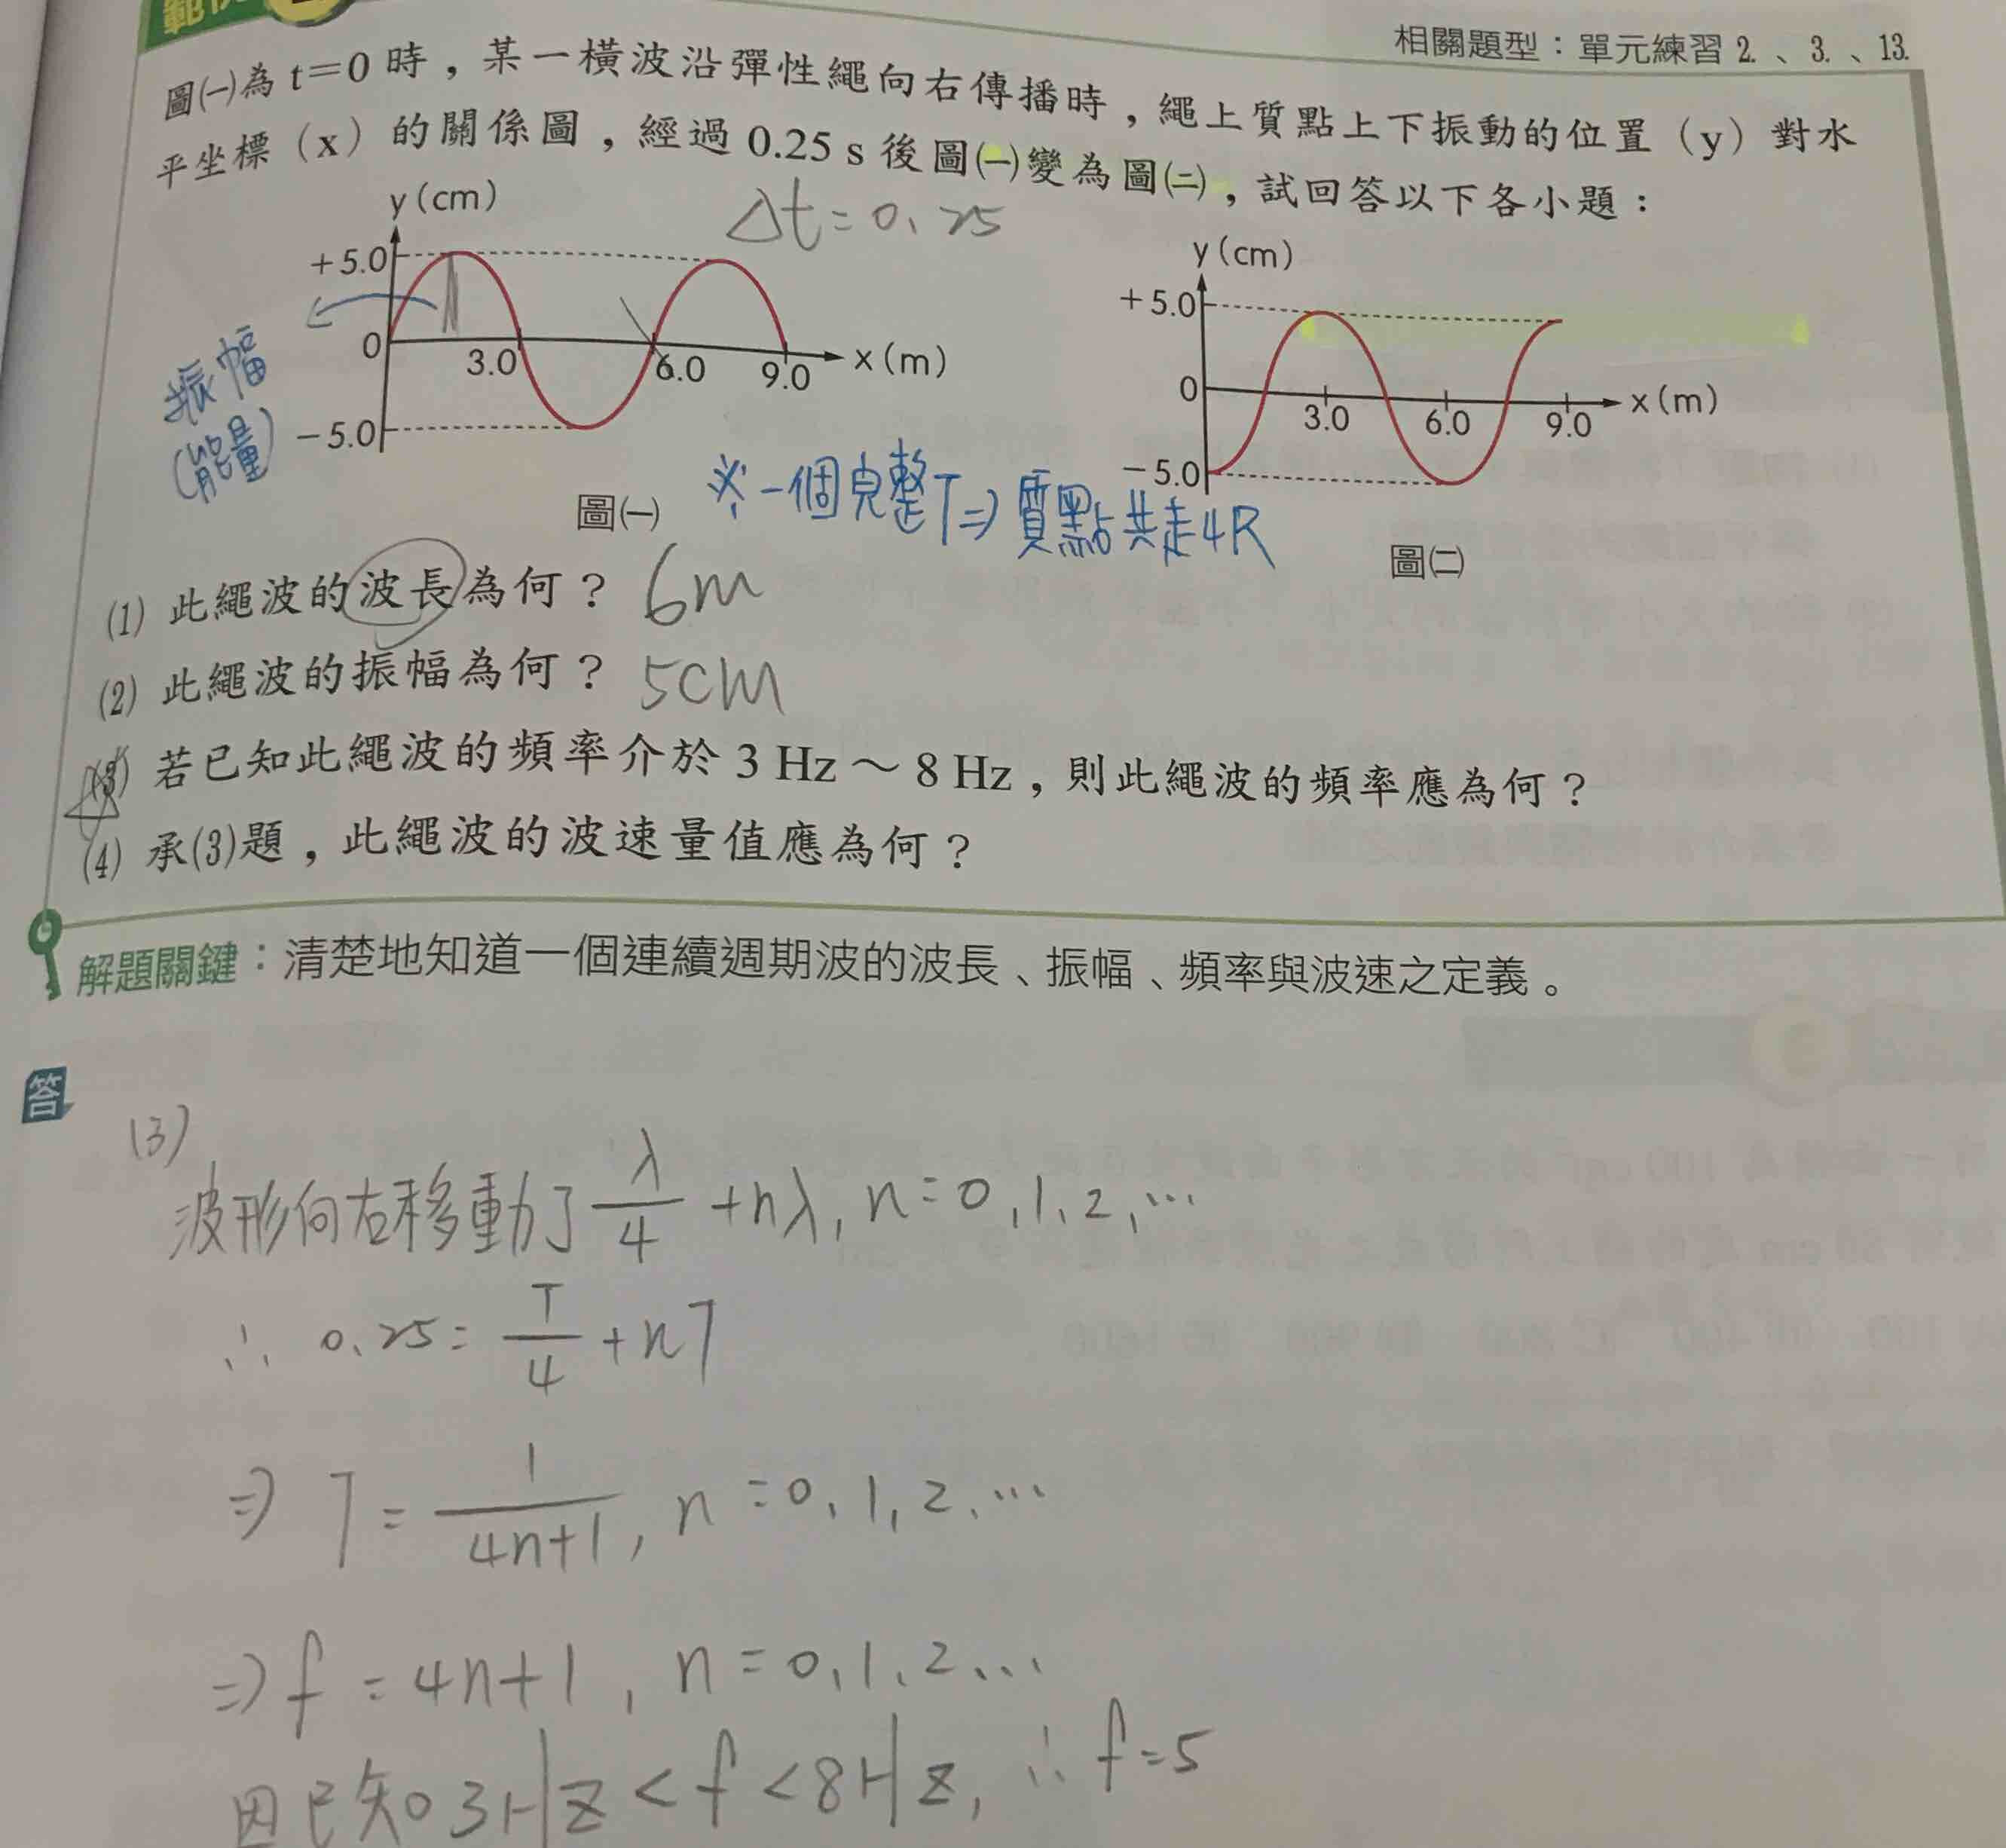 相關題型：單元練習 2.、3.、13.
圖㈠為 t＝0 時，某一橫波沿彈性繩向右傳播時，繩上質點上下振動的位置（y）對水
平坐標（x）的關係圖，經過 0.25 s 後圖㈠變為圖㈡，試回答以下各小題：
Δt=0.25
y(cm)
+5.0
0
-5.0
3.0
6.0
9.0
x(m)
圖㈠
振幅
(能量)
y(cm)
+5.0
0
-5.0
3.0
6.0
9.0
x(m)
圖㈡
※一個完整T⇒質點共走4R
(1) 此繩波的波長為何？ 6m
(2) 此繩波的振幅為何？ 5cm
(3) 若已知此繩波的頻率介於 3 Hz～8 Hz，則此繩波的頻率應為何？
(4) 承(3)題，此繩波的波速量值應為何？
解題關鍵：清楚地知道一個連續週期波的波長、振幅、頻率與波速之定義。
答
(3)
波形向右移動了 λ/4 +nλ, n=0,1,2,…
∴ 0.25= T/4 +nT
⇒ T= 1/4n+1, n=0,1,2,…
⇒ f=4n+1, n=0,1,2…
因已知3Hz<f<8Hz, ∴f=5